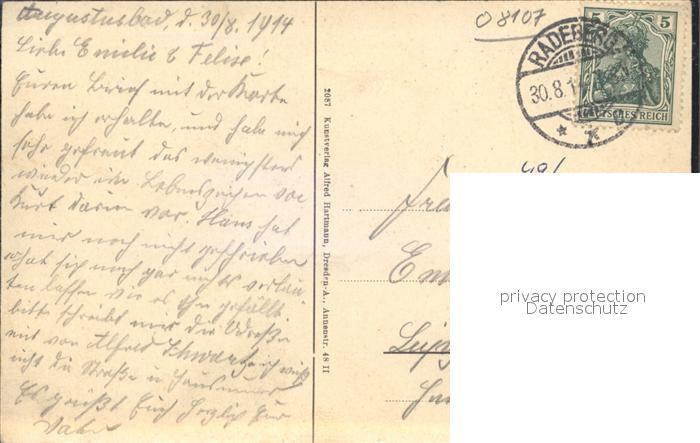 Augustusbad, d. 30/8. 1914
Liebe Emilie & Felise!
Euren Brief mit der Karte
habe ich erhalten, und habe mich
sehr gefreut das wenigstens
wieder ein Lebenszeichen von
Kurt darin war. Hans hat
mir noch nicht geschrieben
hat sich noch gar nichts verlau-
ten lassen wie es ihm gefällt.
bitte schreibt mir die Adresse
mit von Alfred Schwarz ich weiß
nicht die Straße u Hausnummer
Es grüßt Euch herzlich Eur
Vater
2087 Kunstverlag Alfred Hartmann, Dresden-A., Annenstr. 48 II
O 8107
RADEBERG
30.8.1
5 5
DEUTSCHES REICH
Frau
Em
Leipz
privacy protection
Datenschutz